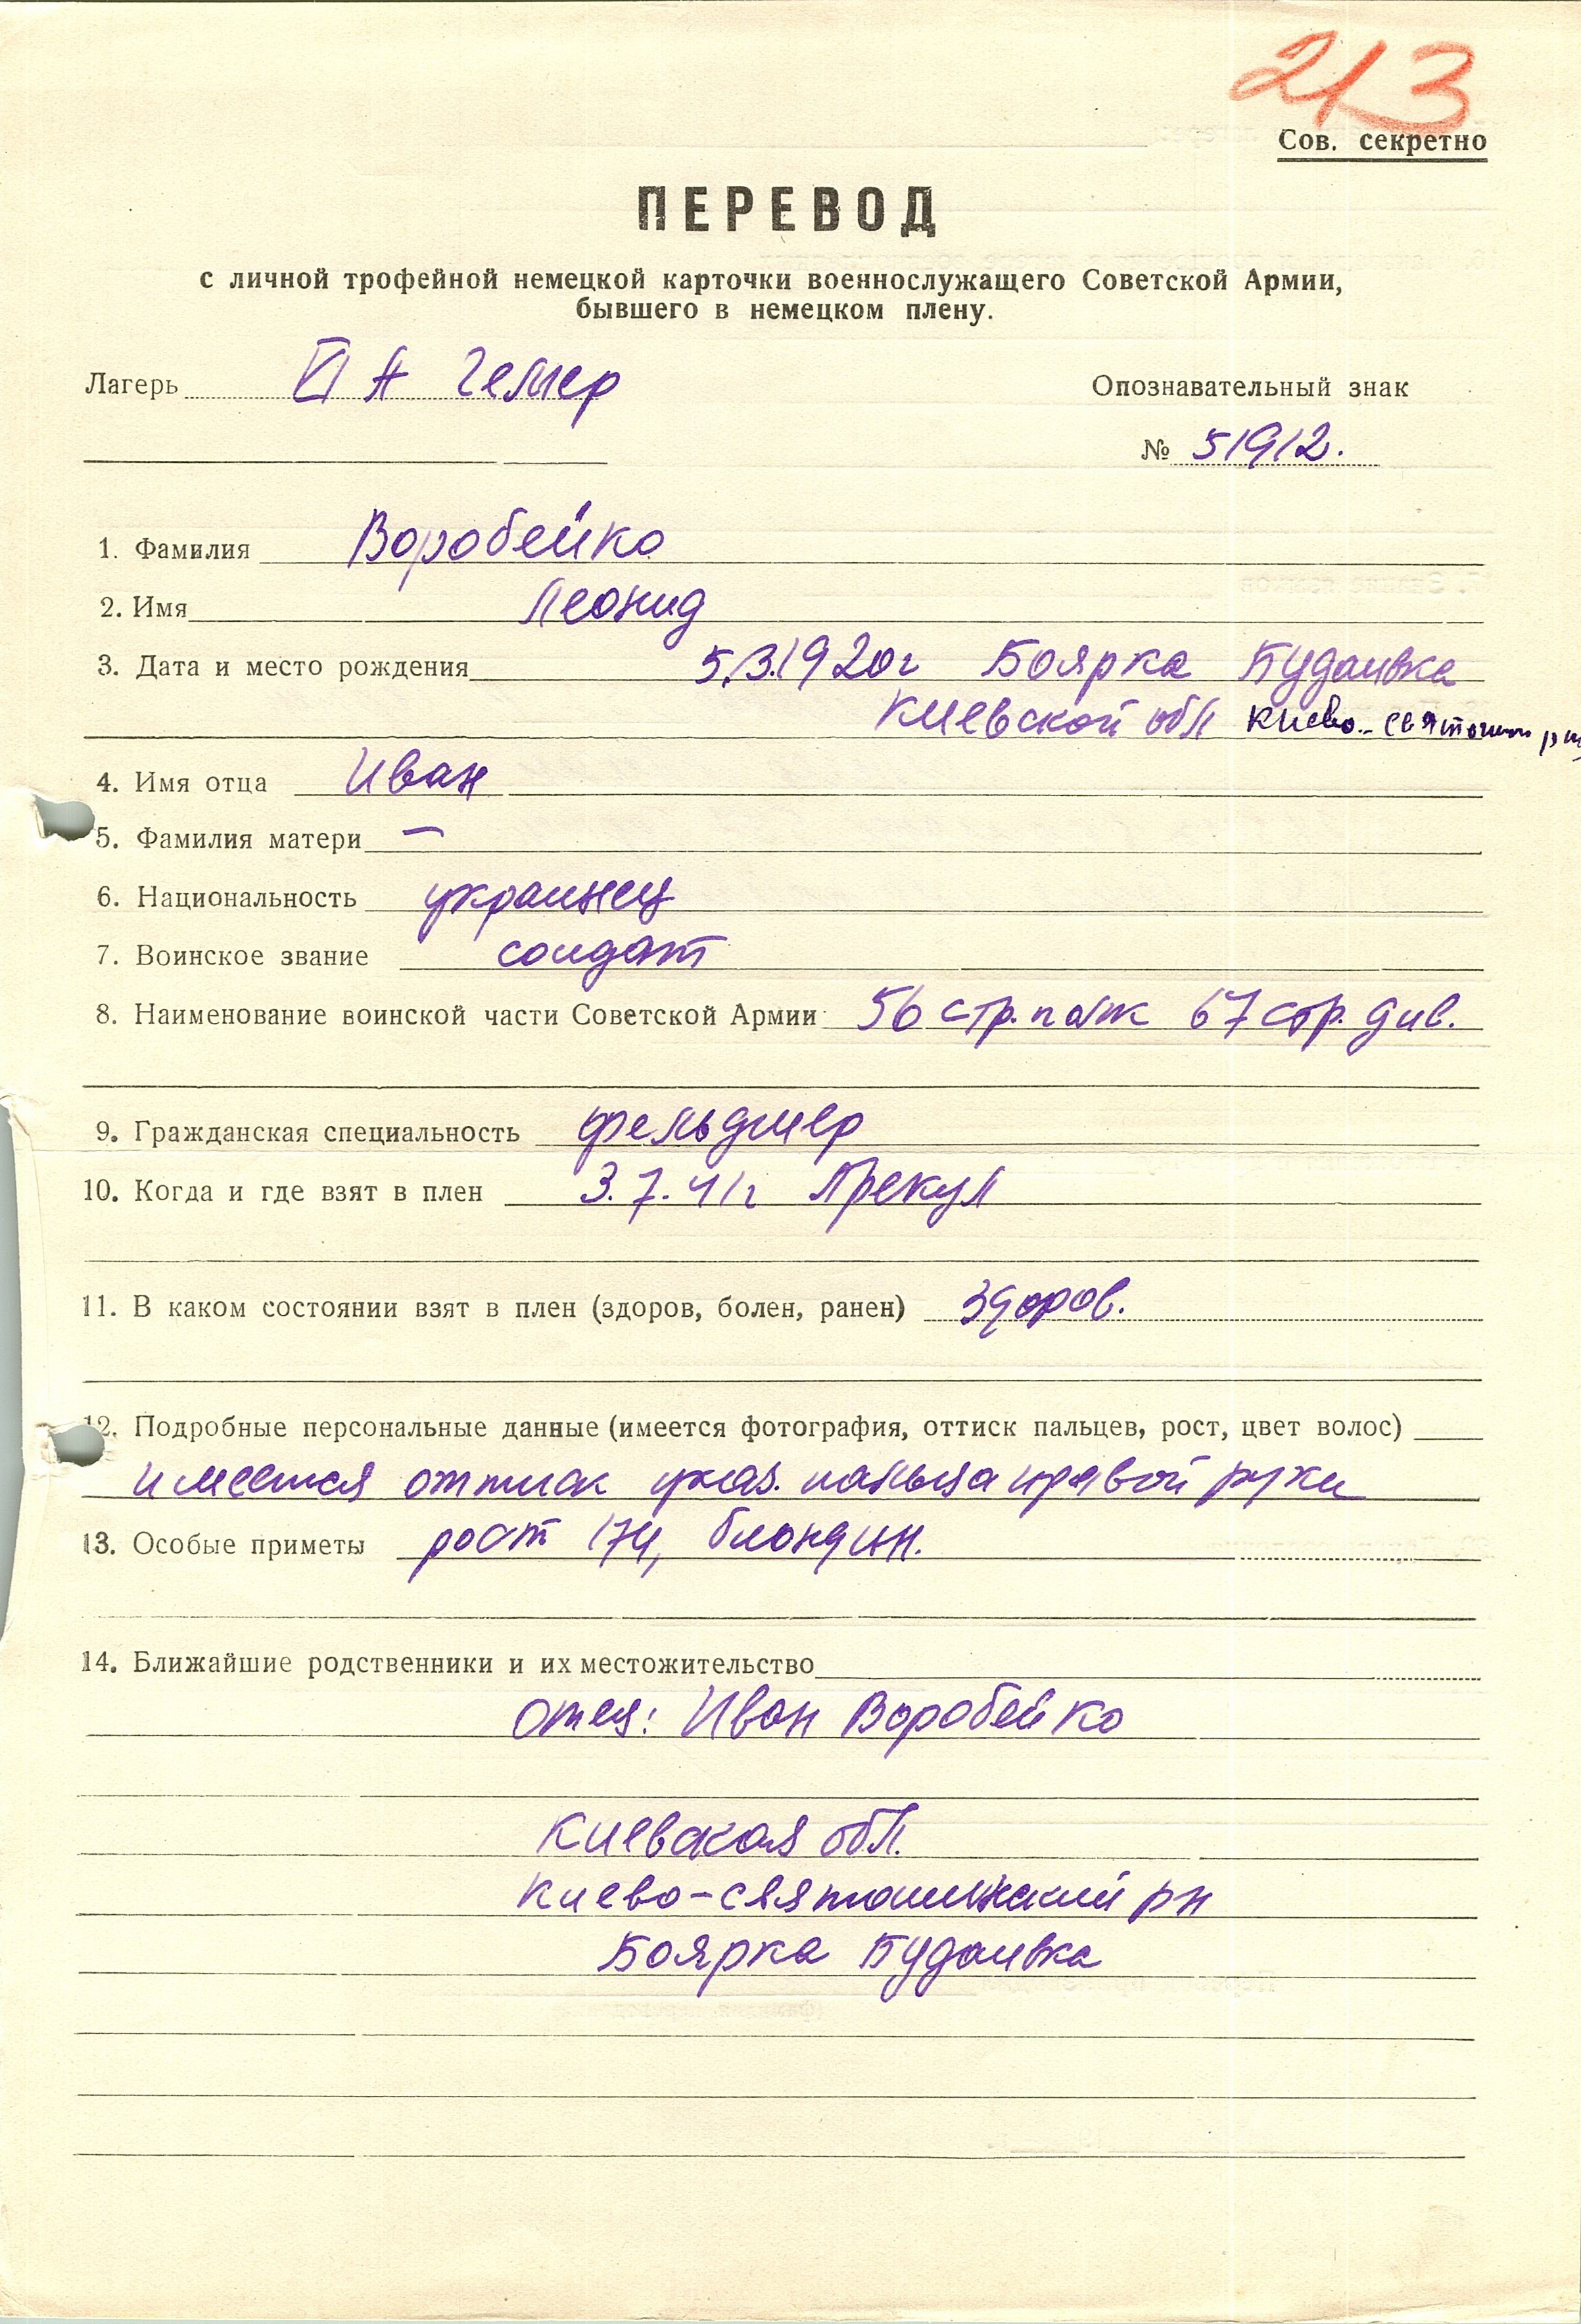 213
Сов. секретно
ПЕРЕВОД
с личной трофейной немецкой карточки военнослужащего Советской Армии,
бывшего в немецком плену.
Лагерь VI А Гемер
Опознавательный знак
№ 51912.
1. Фамилия Воробейко
2. Имя Леонид
3. Дата и место рождения 5.3.1920г Боярка Будаивка
Киевской обл Киево-Святошин рн
4. Имя отца Иван
5. Фамилия матери —
6. Национальность украинец
7. Воинское звание солдат
8. Наименование воинской части Советской Армии 56 стр. полк 67 стр. див.
9. Гражданская специальность фельдшер
10. Когда и где взят в плен 3.7.41г Прекул
11. В каком состоянии взят в плен (здоров, болен, ранен) здоров.
12. Подробные персональные данные (имеется фотография, оттиск пальцев, рост, цвет волос)
имеется оттиск указ. пальца правой руки
13. Особые приметы рост 174, блондин.
14. Ближайшие родственники и их местожительство
отец: Иван Воробейко
Киевская обл.
Киево-Святошинский рн
Боярка Будаивка